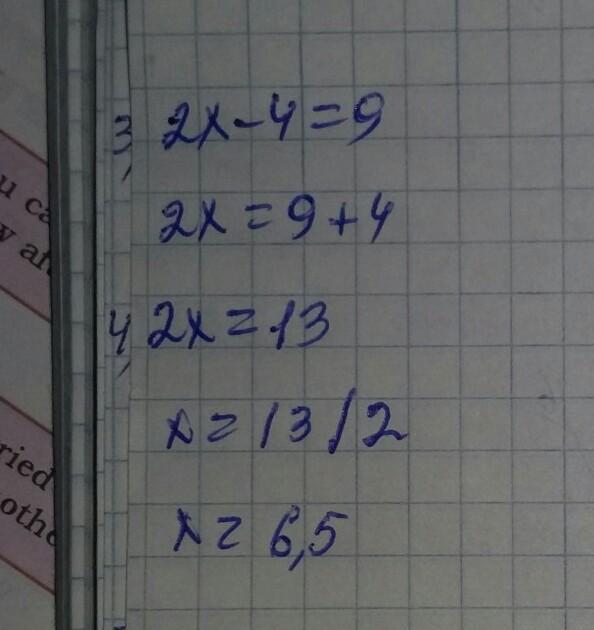 u ca
y aft
ried
othe
3, 2x-4=9
2x=9+4
4, 2x=13
x=13/2
x=6,5